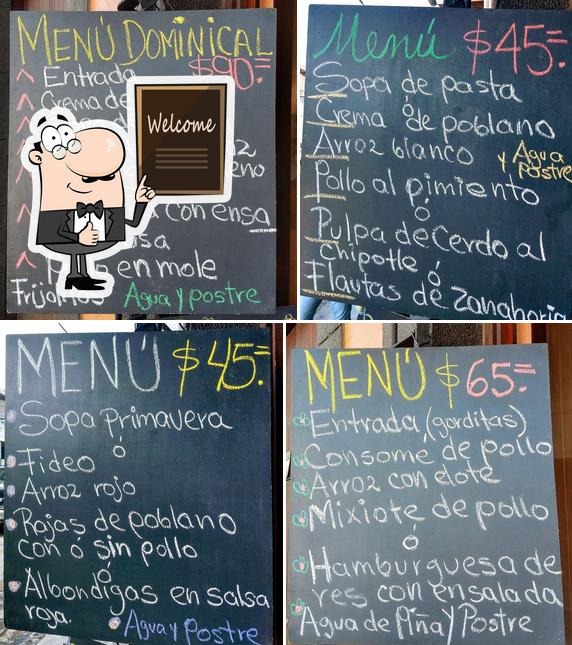 MENÚ DOMINICAL
Entrada $90.=
Crema de
Welcome
con ensa
en mole
Agua y postre
Menú $45.=
Sopa de pasta
ó
Crema de poblano
Arroz blanco y Agua
postre
Pollo al pimiento
ó
Pulpa de Cerdo al
chipotle ó
Flautas de Zanahoria
MENÚ $45.=
Sopa primavera
ó
Fideo
Arroz rojo
Rajas de poblano
con ó sin pollo
ó
Albondigas en salsa
roja.
Agua y Postre
MENÚ $65.=
Entrada (gorditas)
Consome de pollo
Arroz con elote
Mixiote de pollo
ó
Hamburguesa de
res con ensalada
Agua de Piña y Postre